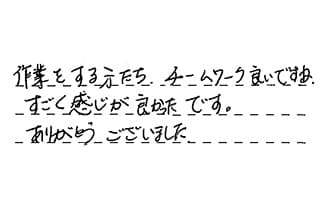 作業をする方たち、チームワーク良いですね、
すごく感じが良かたです。
ありがとう ございました